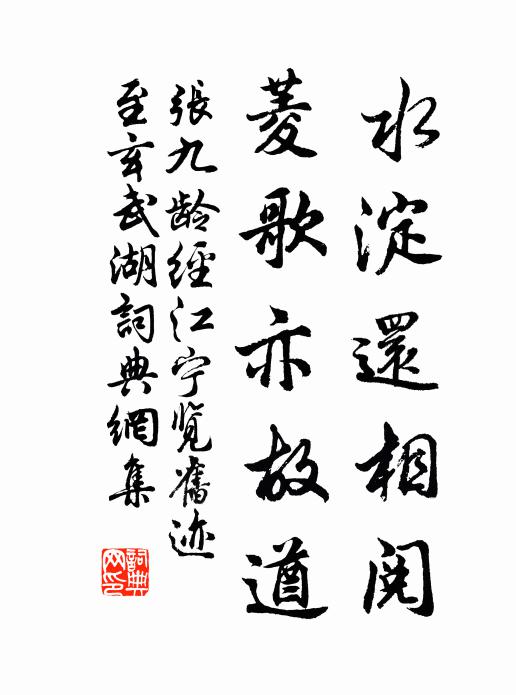 水淀還相阅
菱歌亦故遒
張九龄經江宁览舊迹
至玄武湖詞典網集
詞典
网印